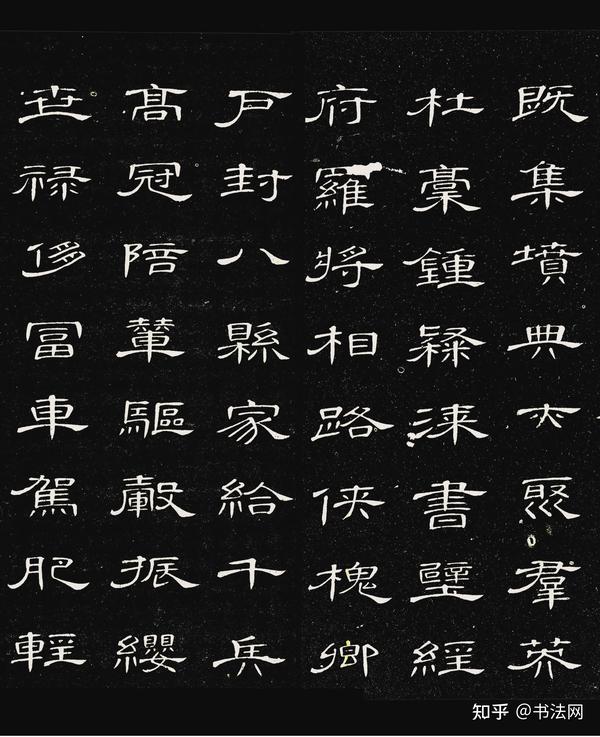 既集墳典亦聚羣英
杜稾鍾隸漆書壁經
府羅將相路俠槐卿
戶封八縣家給千兵
高冠陪輦驅轂振纓
世禄侈富車駕肥輕
知乎 @书法网